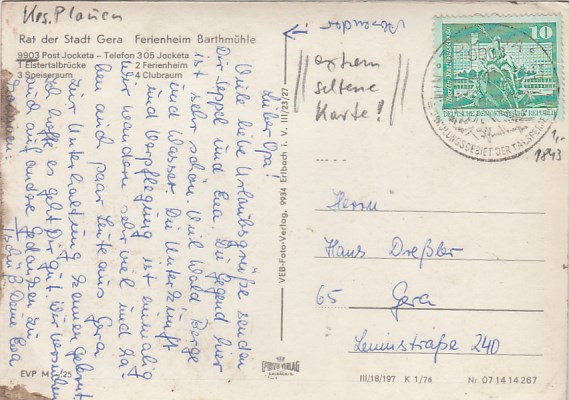 Krs. Plauen
Rat der Stadt Gera Ferienheim Barthmühle
9903 Post Jocketa – Telefon 305 Jocketa
1 Elstertalbrücke 2 Ferienheim
3 Speiseraum 4 Clubraum
Lieber Opa!
Viele liebe Urlaubsgrüße senden
Dir Seppel und Eva. Die Gegend hier
ist sehr schön. Viel Wald, Berge
und Wasser. Die Unterkunft
und Verpflegung ist einmalig
Wir wandern sehr viel und ha-
ben auch paar Leute aus Gera
zur Unterhaltung kennen gelernt.
Ich hoffe es geht Dir gut. Wir versuchen
mal auf andre Gedanken zu
kommen.
Tschüß Deine Eva
EVP M -,25
VEB-Foto-Verlag, 9934 Erlbach i. V. III/23/27
extrem
seltene
Karte!
10
DEUTSCHE DEMOKRATISCHE REPUBLIK
ERHOLUNGSGEBIET DER TALSPERRE
1,-
9843
Herrn
Hans Dreßler
65 Gera
Leninstraße 240
III/18/197 K 1/76 Nr. 07 14 14 267